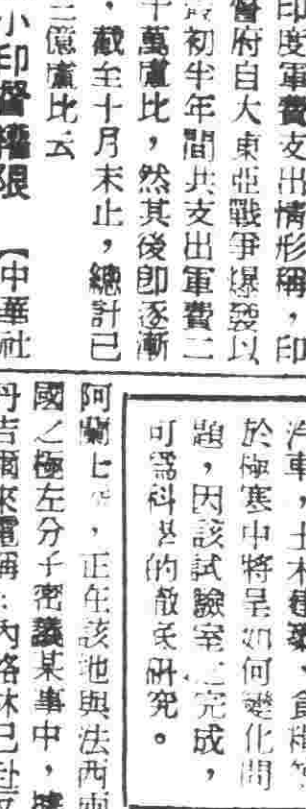 印度軍費支出情形稱，印
督府自大東亞戰爭爆發以
最初半年間共支出軍費二
十萬盧比，然其後即逐漸
，截至十月末止，總計已
二億盧比云
小印督權限 【中華社
汽車，土木建築，食糧等
於極寒中將呈如何變化問
題，因該試驗室之完成，
可為科學的徹底研究。
阿蘭上，正在該地與法西兩
國之極左分子密議某事中，據
丹吉爾來電稱：內格林已赴